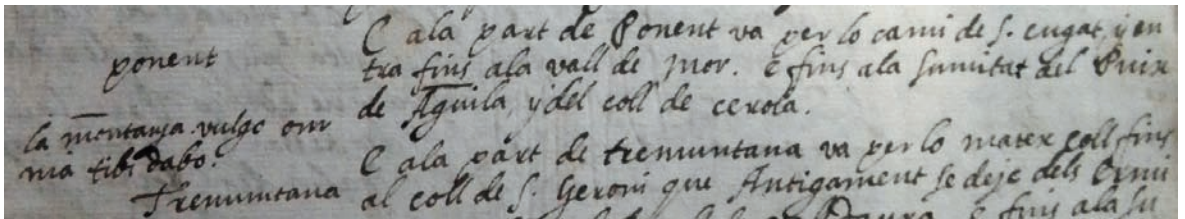 ponent
la montanya vulgo om
nia tibi dabo.
Tremuntana
E ala part de Ponent va per lo cami de S. cugat, y en
tra fins ala vall de Mor. E fins ala sumitat del Puix
de Aguila, y del coll de cerola.
E ala part de tremuntana va per lo matex coll fins
al coll de S. Geroni que Antigament se deje dels Ermi
E fins ala su